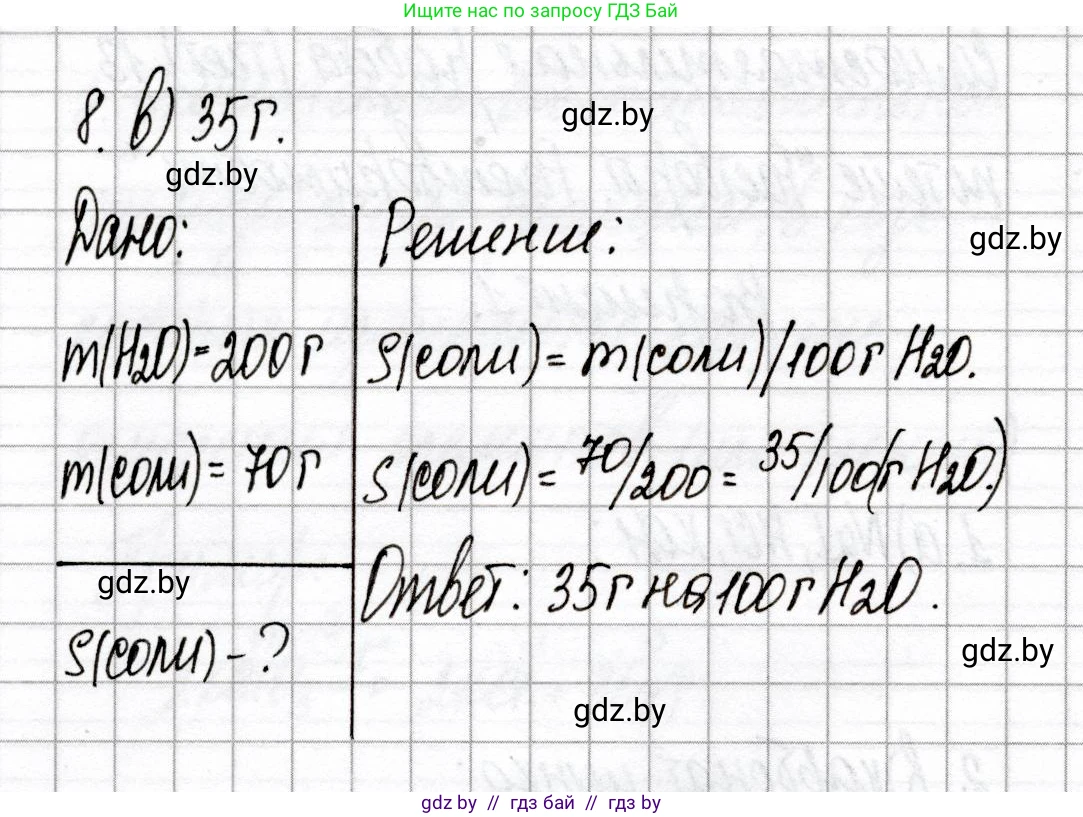 Ищите нас по запросу ГДЗ Бай
8. в) 35 г.
gdz.by
gdz.by
Дано:
Решение:
gdz.by
m(H2O) = 200 г
S(соли) = m(соли)/100 г H2O.
m(соли) = 70 г
S(соли) = 70/200 = 35/100(г H2O.)
gdz.by
Ответ: 35 г на 100 г H2O.
S(соли) - ?
gdz.by
gdz.by
gdz by // гдз бай // гдз by